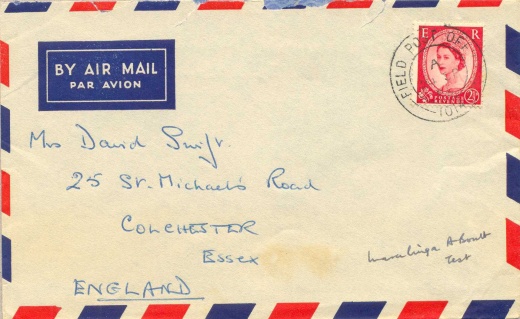 BY AIR MAIL
PAR AVION
E R
POSTAGE
REVENUE
2½
FIELD POST OFF
Mrs David Swift.
25 St. Michael's Road
COLCHESTER
Essex
ENGLAND
Maralinga A-Bomb
Test